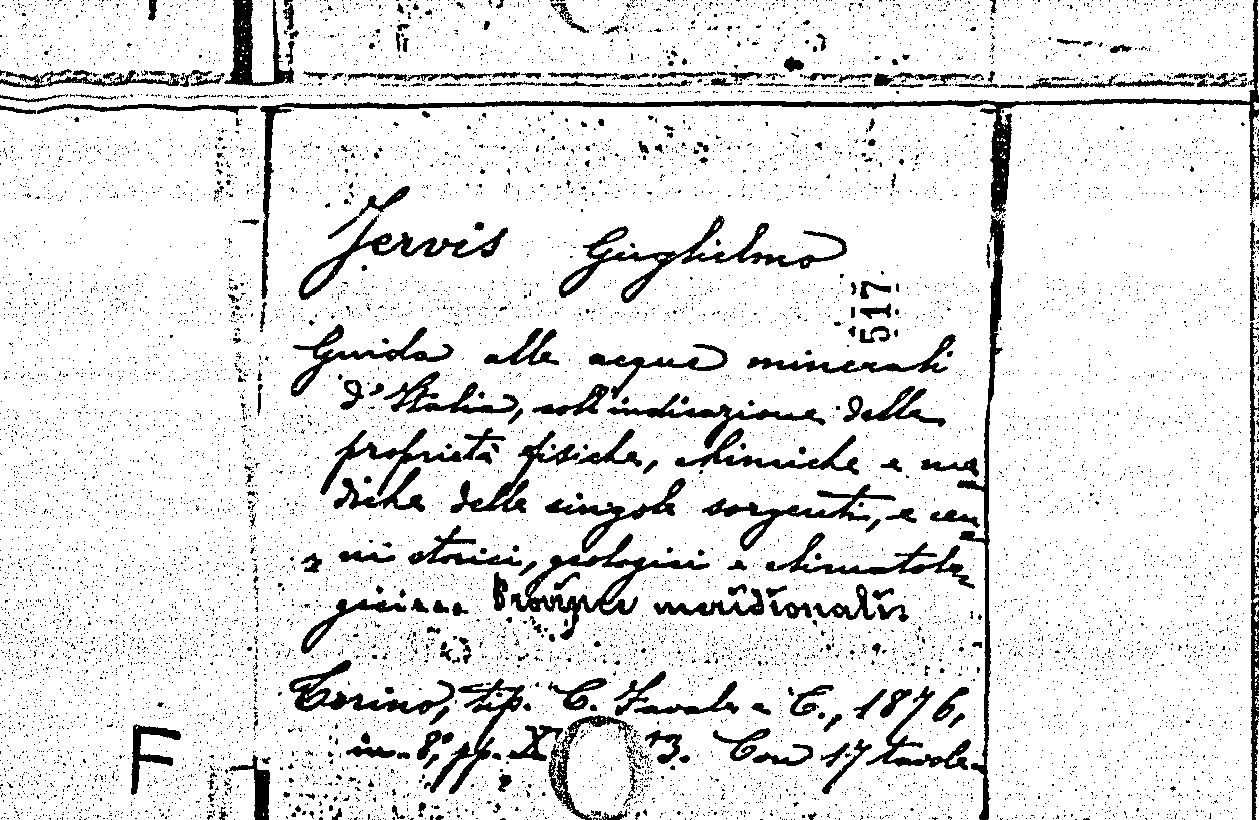 Jervis Guglielmo
517
Guida alle acque minerali
d'Italia, coll'indicazione delle
proprietà fisiche, chimiche e me
diche delle singole sorgenti, e cen
ni storici, geologici e climatolo-
gici... Provincie meridionali.
Torino, tip. C. Favale e C., 1876,
in-8º, pp. X 3. Con 17 tavole
F